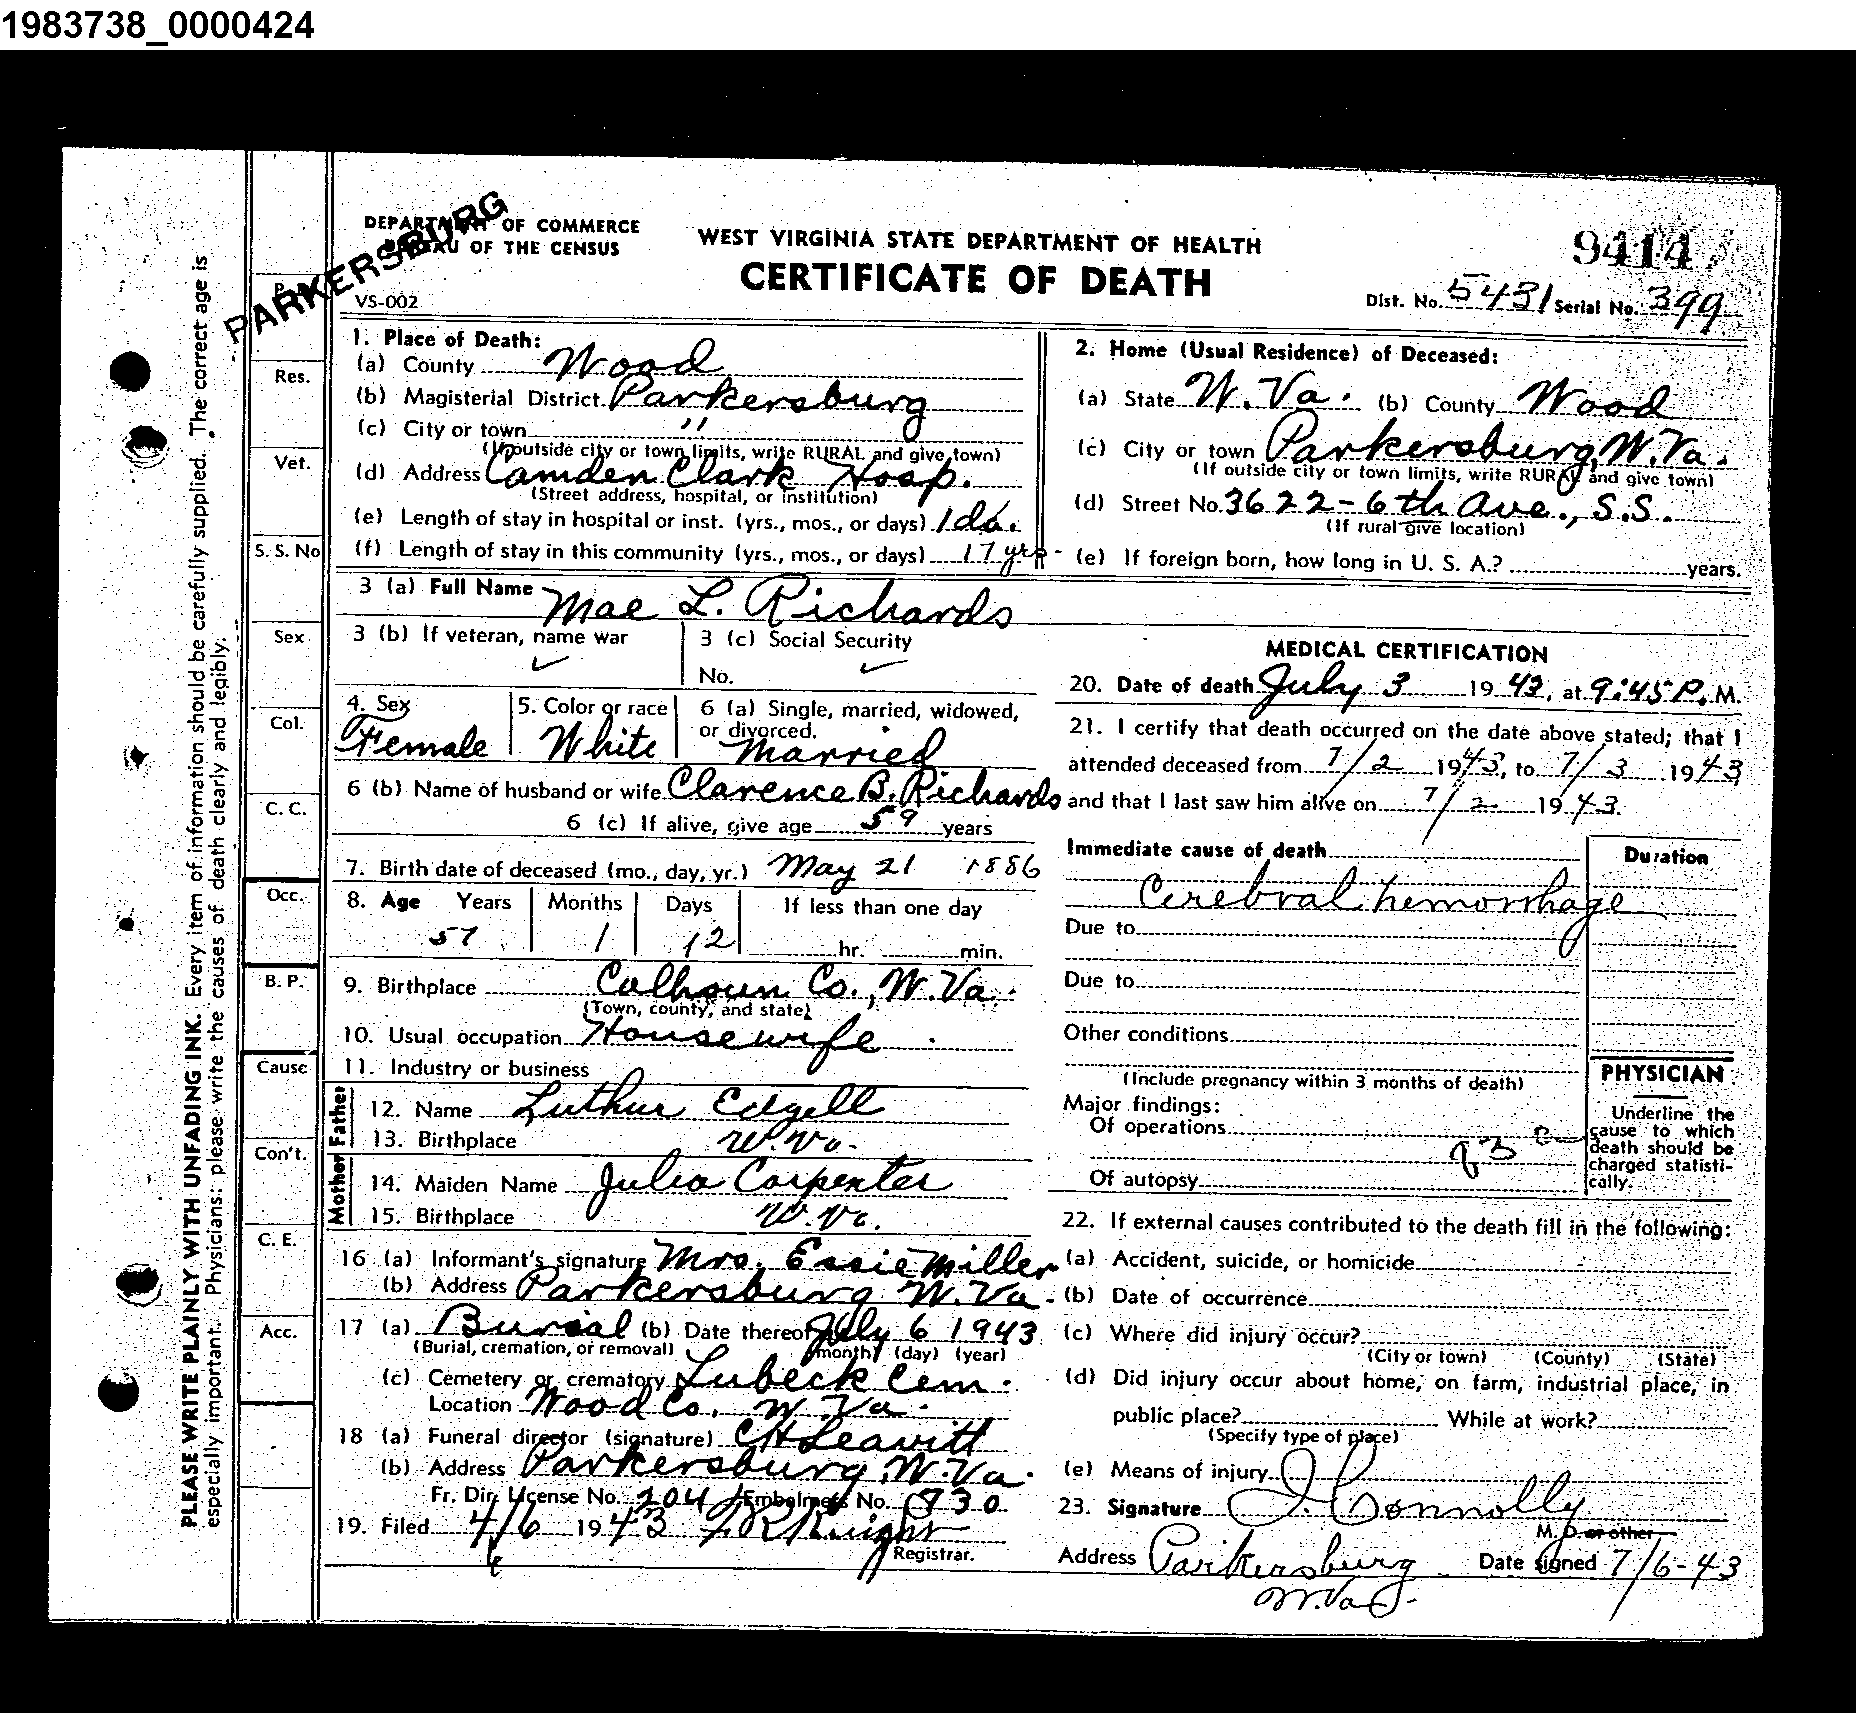 1983738_0000424
PARKERSBURG
DEPARTMENT OF COMMERCE
BUREAU OF THE CENSUS
VS-002
WEST VIRGINIA STATE DEPARTMENT OF HEALTH
CERTIFICATE OF DEATH
9414
Dist. No. 5431 Serial No. 399
PLEASE WRITE PLAINLY WITH UNFADING INK. Every item of information should be carefully supplied. The correct age is
especially important. Physicians: please write the causes of death clearly and legibly.
Res.
Vet.
S. S. No
Sex
Col.
C. C.
Occ.
B. P.
Cause
Con't.
C. E.
Acc.
1. Place of Death:
(a) County Wood
(b) Magisterial District Parkersburg
(c) City or town "
(If outside city or town limits, write RURAL and give town)
(d) Address Camden Clark Hosp.
(Street address, hospital, or institution)
(e) Length of stay in hospital or inst. (yrs., mos., or days) 1 da.
(f) Length of stay in this community (yrs., mos., or days) 17 yrs.
2. Home (Usual Residence) of Deceased:
(a) State W. Va. (b) County Wood
(c) City or town Parkersburg, W. Va.
(If outside city or town limits, write RURAL and give town)
(d) Street No. 3622-6th Ave., S.S.
(If rural give location)
(e) If foreign born, how long in U. S. A.? years.
3 (a) Full Name Mae L. Richards
3 (b) If veteran, name war ✓
3 (c) Social Security
No. ✓
4. Sex Female
5. Color or race White
6 (a) Single, married, widowed,
or divorced. Married
6 (b) Name of husband or wife Clarence B. Richards
6 (c) If alive, give age 59 years
7. Birth date of deceased (mo., day, yr.) May 21 1886
8. Age Years Months Days If less than one day
57 1 12 hr. min.
9. Birthplace Calhoun Co., W. Va.
(Town, county, and state)
10. Usual occupation Housewife
11. Industry or business
Father
12. Name Luthur Edgell
13. Birthplace W. Va.
Mother
14. Maiden Name Julia Carpenter
15. Birthplace W. Va.
16 (a) Informant's signature Mrs. Essie Miller
(b) Address Parkersburg W. Va.
17 (a) Burial (b) Date thereof July 6 1943
(Burial, cremation, or removal) (month) (day) (year)
(c) Cemetery or crematory Lubeck Cem.
Location Wood Co. W. Va.
18 (a) Funeral director (signature) C H Leavitt
(b) Address Parkersburg, W. Va.
Fr. Dir. License No. 204 Embalmers No.
19. Filed 1943 Knight
Registrar.
MEDICAL CERTIFICATION
20. Date of death July 3 1943, at 9:45 P. M.
21. I certify that death occurred on the date above stated; that I
attended deceased from 7/2 1943, to 7/3 1943
and that I last saw him alive on 7/2 1943.
Immediate cause of death Duration
Cerebral hemorrhage
Due to
Due to
Other conditions
(Include pregnancy within 3 months of death)
Major findings:
Of operations
Of autopsy
PHYSICIAN
Underline the
cause to which
death should be
charged statisti-
cally.
22. If external causes contributed to the death fill in the following:
(a) Accident, suicide, or homicide
(b) Date of occurrence
(c) Where did injury occur?
(City or town) (County) (State)
(d) Did injury occur about home, on farm, industrial place, in
public place? While at work?
(Specify type of place)
(e) Means of injury
23. Signature J. Connolly
M. D. or other
Address Parkersburg Date signed 7/6-43
W. Va.